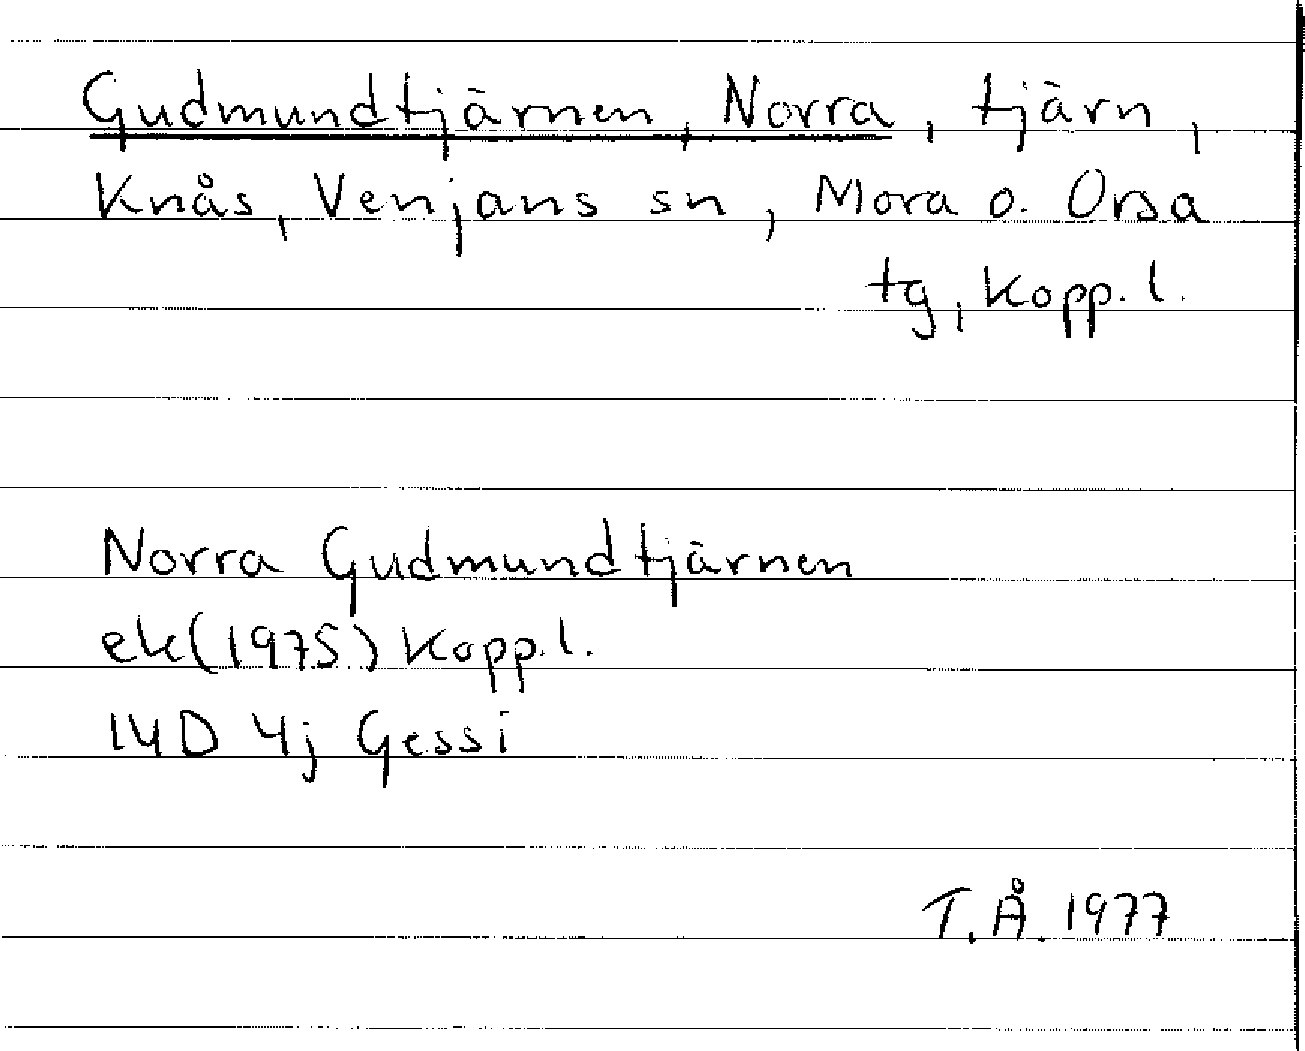 Gudmundtjärnen, Norra, tjärn,
Knås, Venjans sn, Mora o. Orsa
tg, Kopp. l.
Norra Gudmundtjärnen
ek(1975) Kopp.l.
14D 4j Gessi
T.Å. 1977